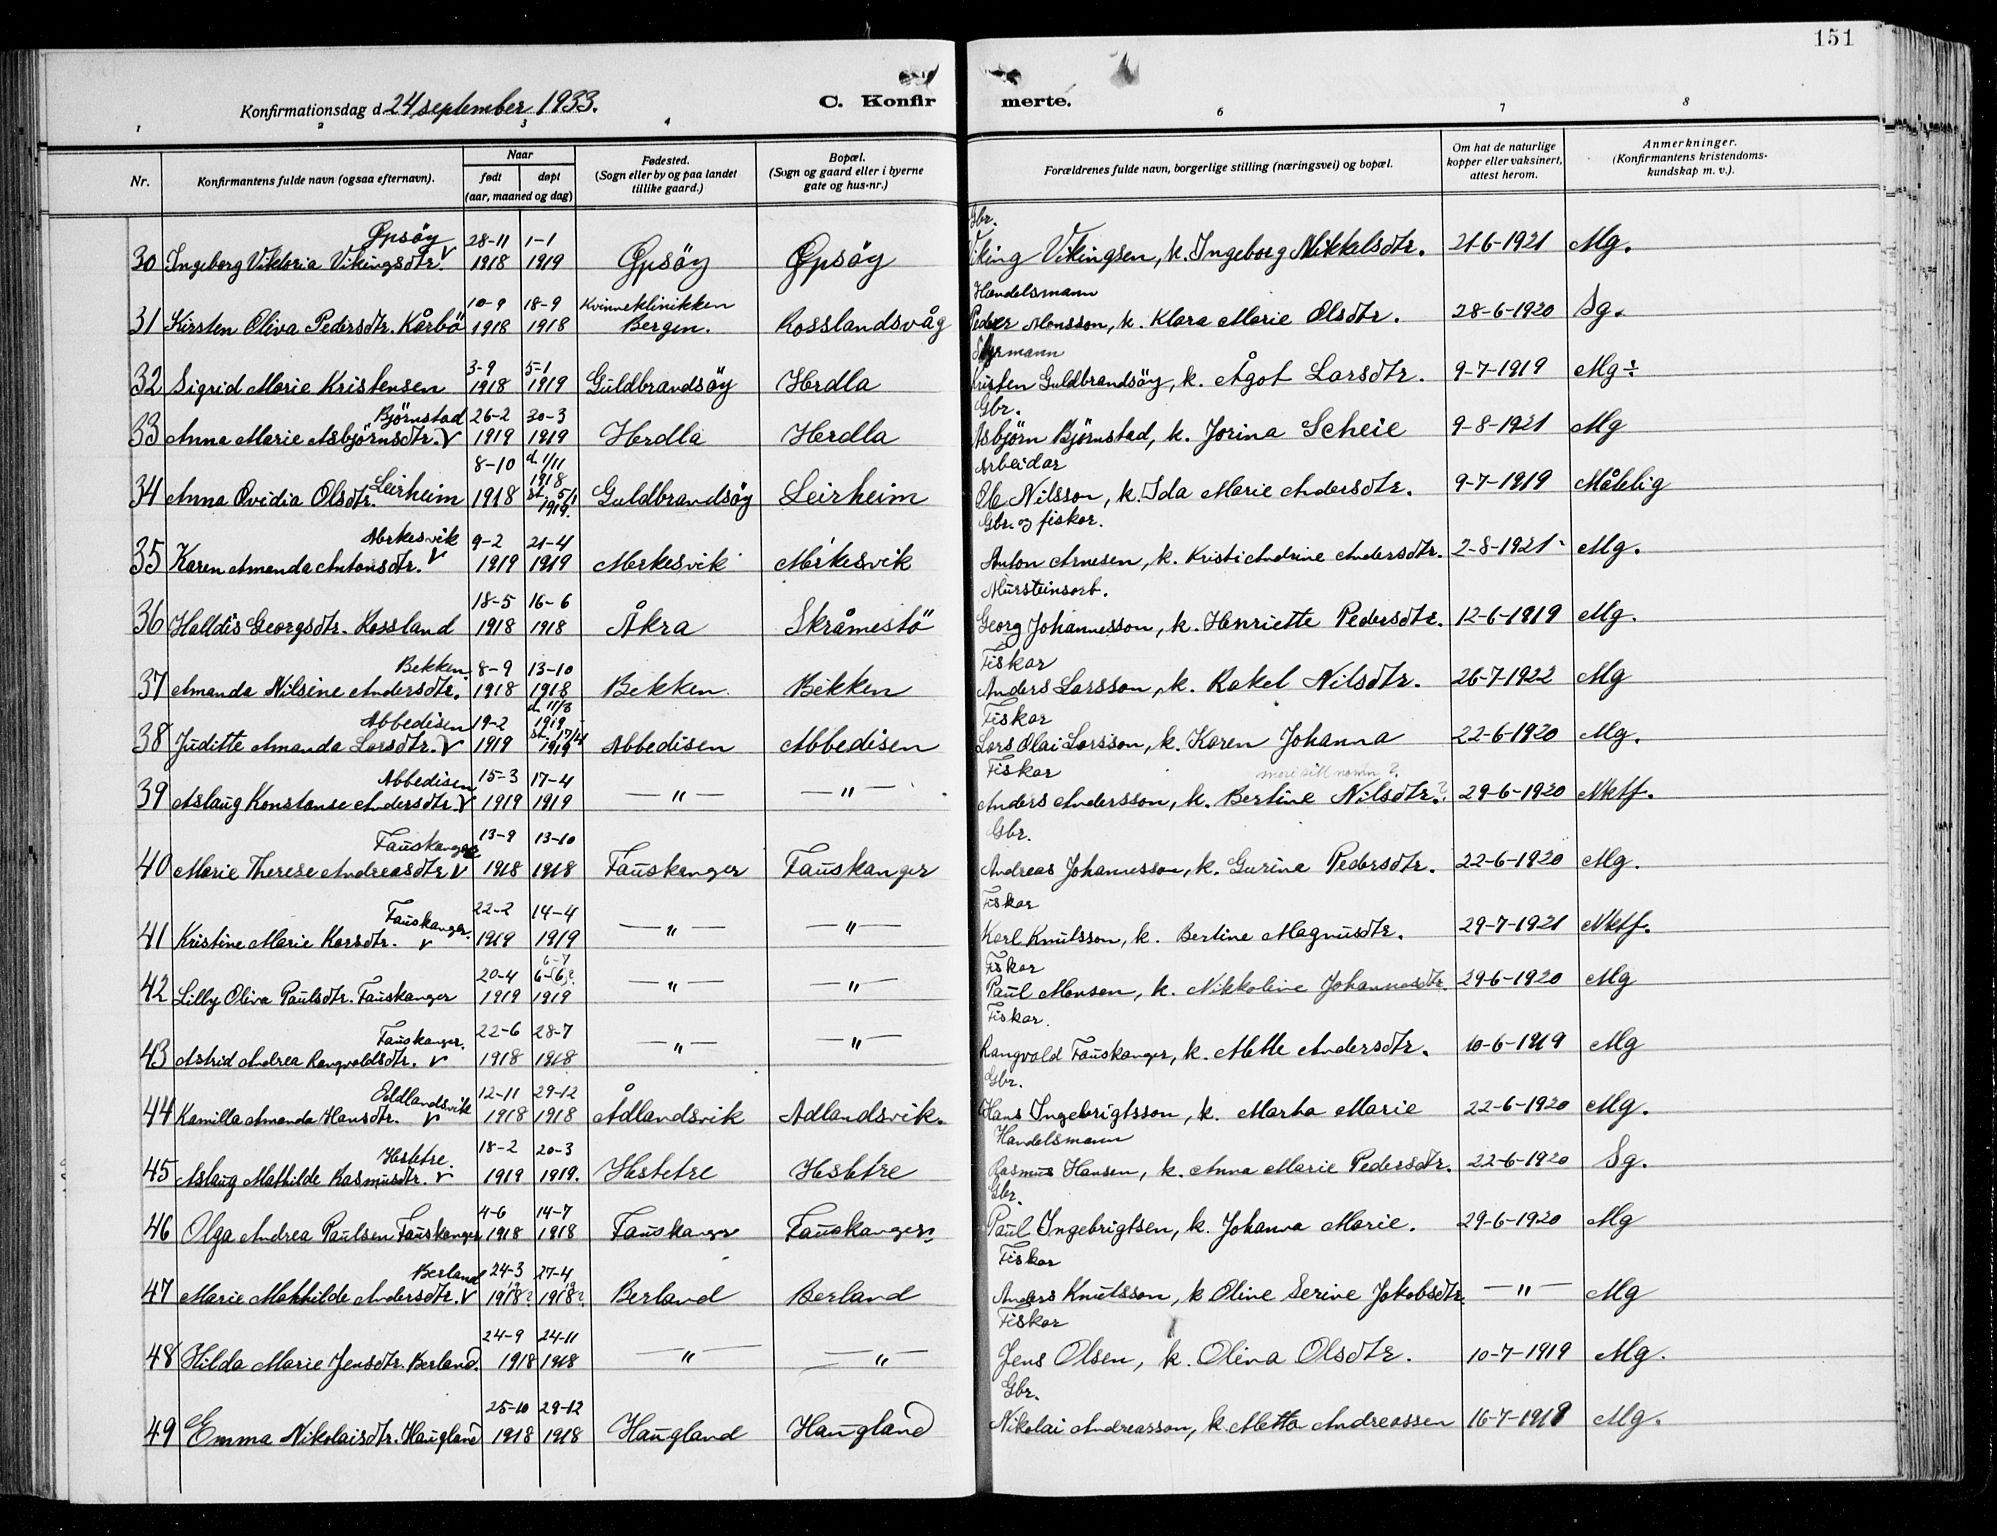 151
Konfirmationsdag d. 24 september 1933.
C. Konfirmerte.
1 2 3 4 6 7 8
Nr.
Konfirmantens fulde navn (ogsaa efternavn).
Naar
født døpt
(aar, maaned og dag)
Fødested.
(Sogn eller by og paa landet
tillike gaard.)
Bopæl.
(Sogn og gaard eller i byerne
gate og hus-nr.)
Forældrenes fulde navn, borgerlige stilling (næringsvei) og bopæl.
Om hat de naturlige
kopper eller vaksinert,
attest herom.
Anmerkninger.
(Konfirmantens kristendoms-
kundskap m. v.).
Øpsöy 28-11 1-1 Gbr.
30 Ingeborg Viktoria Vikingsdtr. V 1918 1919 Øpsöy Øpsöy Viking Vikingsen, k. Ingeborg Mikkelsdtr. 21-6-1921 Mg.
10-9 18-9 Kvinneklinikken Handelsmann
31 Kirsten Oliva Pedersdtr. Kårbö 1918 1918 Bergen. Rosslandsvåg Peder Monsson, k. Klara Marie Olsdtr. 28-6-1920 Sg.
3-9 5-1 Styrmann
32 Sigrid Marie Kristensen 1918 1919 Guldbrandsöy Herdla Kristen Guldbrandsöy, k. Ågot Larsdtr. 9-7-1919 Mg÷
Björnstad 26-2 30-3 Gbr.
33 Anna Marie Asbjörnsdtr. V 1919 1919 Herdla Herdla Asbjörn Björnstad, k. Jorina Scheie 9-8-1921 Mg
8-10 d. 1/11 1918 Arbeidar
34 Anna Ovidia Olsdtr. Leirheim 1918 st. 5/1 1919. Guldbrandsöy Leirheim Ole Nilsson, k. Ida Marie Andersdtr. 9-7-1919 Måtelig
Merkesvik 9-2 21-4 Gbr. og fiskar.
35 Karen Amanda Antonsdtr. V 1919 1919 Merkesvik Merkesvik Anton Arnesen, k. Kristi Andrine Andersdtr. 2-8-1921 Mg.
18-5 16-6 Mursteinsarb.
36 Halldis Georgsdtr. Rossland 1918 1918 Åkra Skråmestö Georg Johannesson, k. Henriette Pedersdtr. 12-6-1919 Mg.
Bekken 8-9 13-10 Fiskar
37 Amanda Nilsine Andersdtr. 1918 1918 Bekken Bekken Anders Larsson, k. Rakel Nilsdtr. 26-7-1922 Mg
Abbedisen 19-2 d. 11/3 1919 Fiskar
38 Juditte Amanda Larsdtr. V 1919 st. 17/4 1919 Abbedisen Abbedisen Lars Olai Larsson, k. Karen Johanna 22-6-1920 Mg.
Abbedisen 15-3 17-4 Fiskar
39 Aslaug Konstanse Andersdtr. V 1919 1919 — " — — " — Anders Andersson, k. Bertine Nilsdtr.? 29-6-1920 Mktf.
Fauskanger 13-9 13-10 Gbr.
40 Marie Therese Andreasdtr. V 1918 1918 Fauskanger Fauskanger Andreas Johannesson, k. Gurine Pedersdtr. 22-6-1920 Mg.
Fauskanger. 22-2 14-4 Fiskar
41 Kristine Marie Karsdtr. V 1919 1919 — " — — " — Karl Knutsson, k. Bertine Magnusdtr. 29-7-1921 Mktf.
20-4 6-7 6-6? Fiskar
42 Lilly Oliva Paulsdtr. Fauskanger 1919 1919 — " — — " — Paul Monsen, k. Nikkoline Johannesdtr. 29-6-1920 Mg
Fauskanger. 22-6 28-7 Fiskar.
43 Astrid Andrea Rangvaldsdtr. V 1918 1918 — " — — " — Rangvald Fauskanger, k. Mette Andersdtr. 10-6-1919 Mg
Ådlandsvik 12-11 29-12 Gbr.
44 Kamilla Amanda Hansdtr. V 1918 1918 Ådlandsvik Ådlandsvik. Hans Ingebrigtsson, k. Marta Marie 22-6-1920 Mg.
Hestetre. 18-2 20-3 Handelsmann
45 Aslaug Mathilde Rasmusdtr. V 1919 1919. Hestetre Hestetre Rasmus Hansen, k. Anna Marie Pedersdtr. 22-6-1920 Sg.
4-6 14-7 Gbr.
46 Olga Andrea Paulsen Fauskanger 1918 1918 Fauskanger Fauskanger Paul Ingebrigtsen, k. Johanna Marie. 29-6-1920 Mg
Berland 24-3 27-4 Fiskar
47 Marie Mathilde Andersdtr. V 1918? 1918? Berland Berland Anders Knutsson, k Oline Serine Jakobsdtr. — " — Mg
24-9 24-11 Fiskar
48 Hilda Marie Jensdtr. Berland. 1918 1918 — " — — " — Jens Olsen, k. Oliva Olsdtr. 10-7-1919 Mg.
25-10 29-12 Gbr.
49 Emma Nikolaisdtr. Haugland 1918 1918 Haugland Haugland Nikolai Andreasson, k. Metta Andreassen 16-7-1919 Mg.